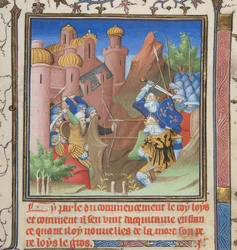 Cy parle du commencement le roy loys
et comment il sen vint dacquitaire en fran
ce quant il oy nouuelles de la mort son pe
re loys le gros.